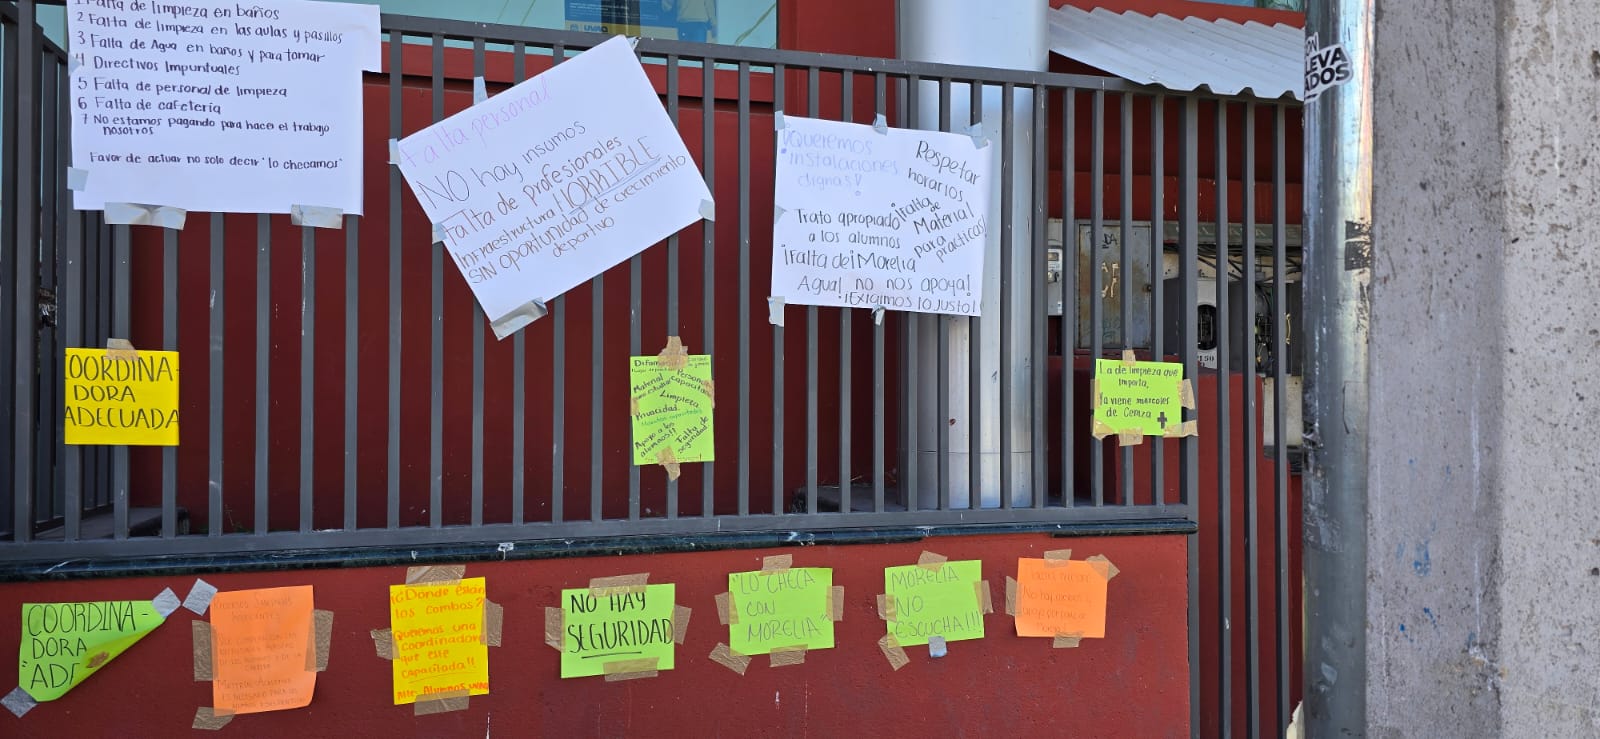 1 Falta de limpieza en baños
2 Falta de limpieza en las aulas y pasillos
3 Falta de Agua en baños y para tomar
4 Directivos Impuntuales
5 Falta de personal de limpieza
6 Falta de cafetería
7 No estamos pagando para hacer el trabajo
nosotros
Favor de actuar no solo decir "lo checamos"
Falta personal
NO hay insumos
Falta de profesionales
Infraestructura HORRIBLE
SIN oportunidad de crecimiento
deportivo
¡Queremos
instalaciones
dignas!
Respetar
horarios
Trato apropiado
a los alumnos
¡Falta
de
Material
para
prácticas!
¡Falta de
Agua!
¡Morelia
no nos apoya!
¡Exigimos lo justo!
UVAQ
ON
LEVA
ADOS
COORDINA-
DORA
ADECUADA
Material
Personal
capacitado
Limpieza
Privacidad
Apoyo a los
alumnos!!
Falta de
seguridad
La de limpieza que
importa,
Ya viene miércoles
de Ceniza
COORDINA-
DORA
"AD
¿¡Dónde están
los combos?
Queremos una
coordinadora
que esté
capacitada!!
Atte: Alumnos UVAQ
NO HAY
SEGURIDAD
"LO CHECA
CON
MORELIA"
MORELIA
NO
ESCUCHA!!!